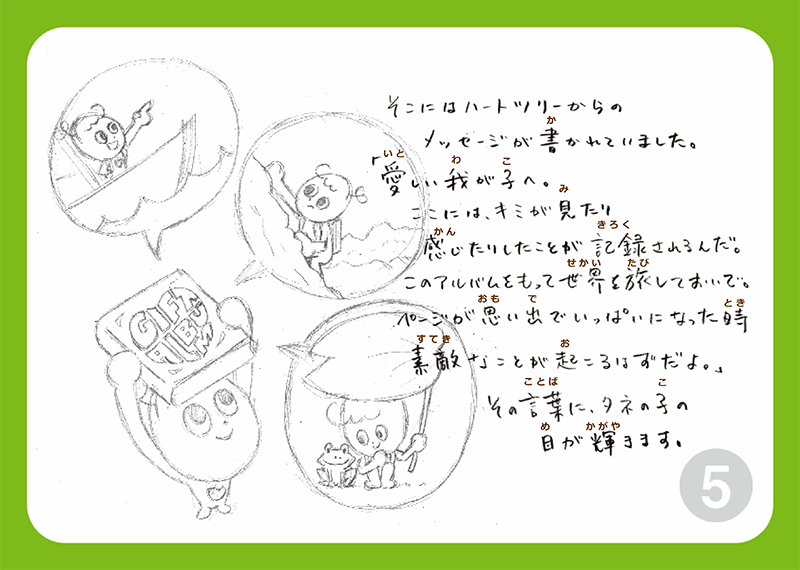 そこにはハートツリーからの
メッセージが書かれていました。
「愛しい我が子へ。
ここには、キミが見たり
感じたりしたことが記録されるんだ。
このアルバムをもって世界を旅しておいで。
ページが思い出でいっぱいになった時
素敵なことが起こるはずだよ。」
その言葉に、タネの子の
目が輝きます。
か
いと わ こ
み
かん きろく
せかい たび
おも で とき
すてき お
ことば こ
め かがや
GIFT
ALBUM
5